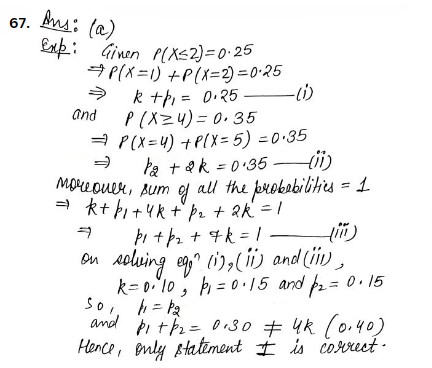 67. Ans: (a)
Exp: Given P(X≤2)=0.25
⇒ P(X=1) + P(X=2) = 0.25
⇒ k + p₁ = 0.25 —(i)
and P(X≥4) = 0.35
⇒ P(X=4) + P(X=5) = 0.35
⇒ p₂ + 2k = 0.35 —(ii)
Moreover, sum of all the probabilities = 1
⇒ k + p₁ + 4k + p₂ + 2k = 1
⇒ p₁ + p₂ + 7k = 1 —(iii)
on solving eqⁿ (i), (ii) and (iii),
k = 0.10, p₁ = 0.15 and p₂ = 0.15
So, p₁ = p₂
and p₁ + p₂ = 0.30 ≠ 4k (0.40)
Hence, only statement I is correct.